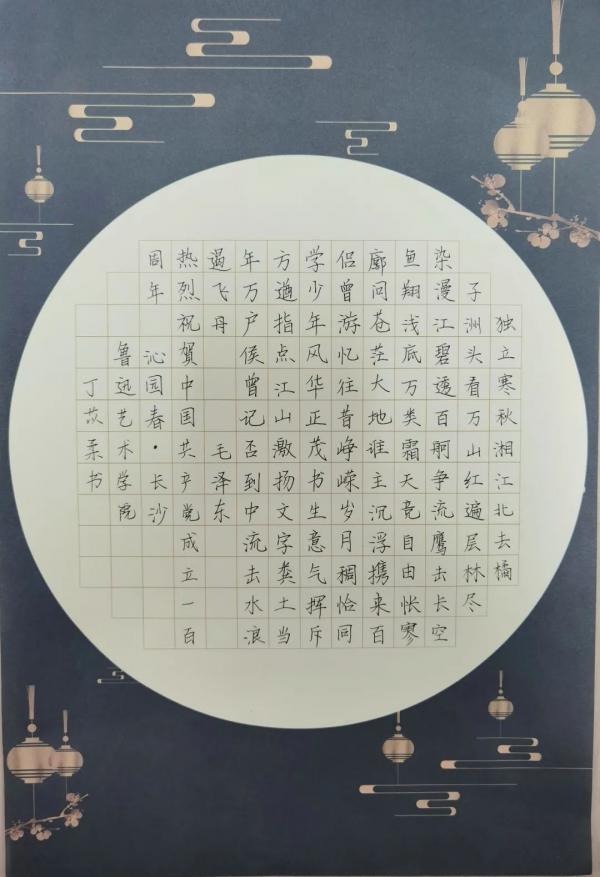 独立寒秋湘江北去橘
子洲头看万山红遍层林尽
染漫江碧透百舸争流鹰击长空
鱼翔浅底万类霜天竞自由怅寥
廓问苍茫大地谁主沉浮携来百
侣曾游忆往昔峥嵘岁月稠恰同
学少年风华正茂书生意气挥斥
方遒指点江山激扬文字粪土当
年万户侯曾记否到中流击水浪
遏飞舟 毛泽东
热烈祝賀中国共产党成立一百
周年 沁园春·长沙
鲁迅艺术学院
丁苡柔书